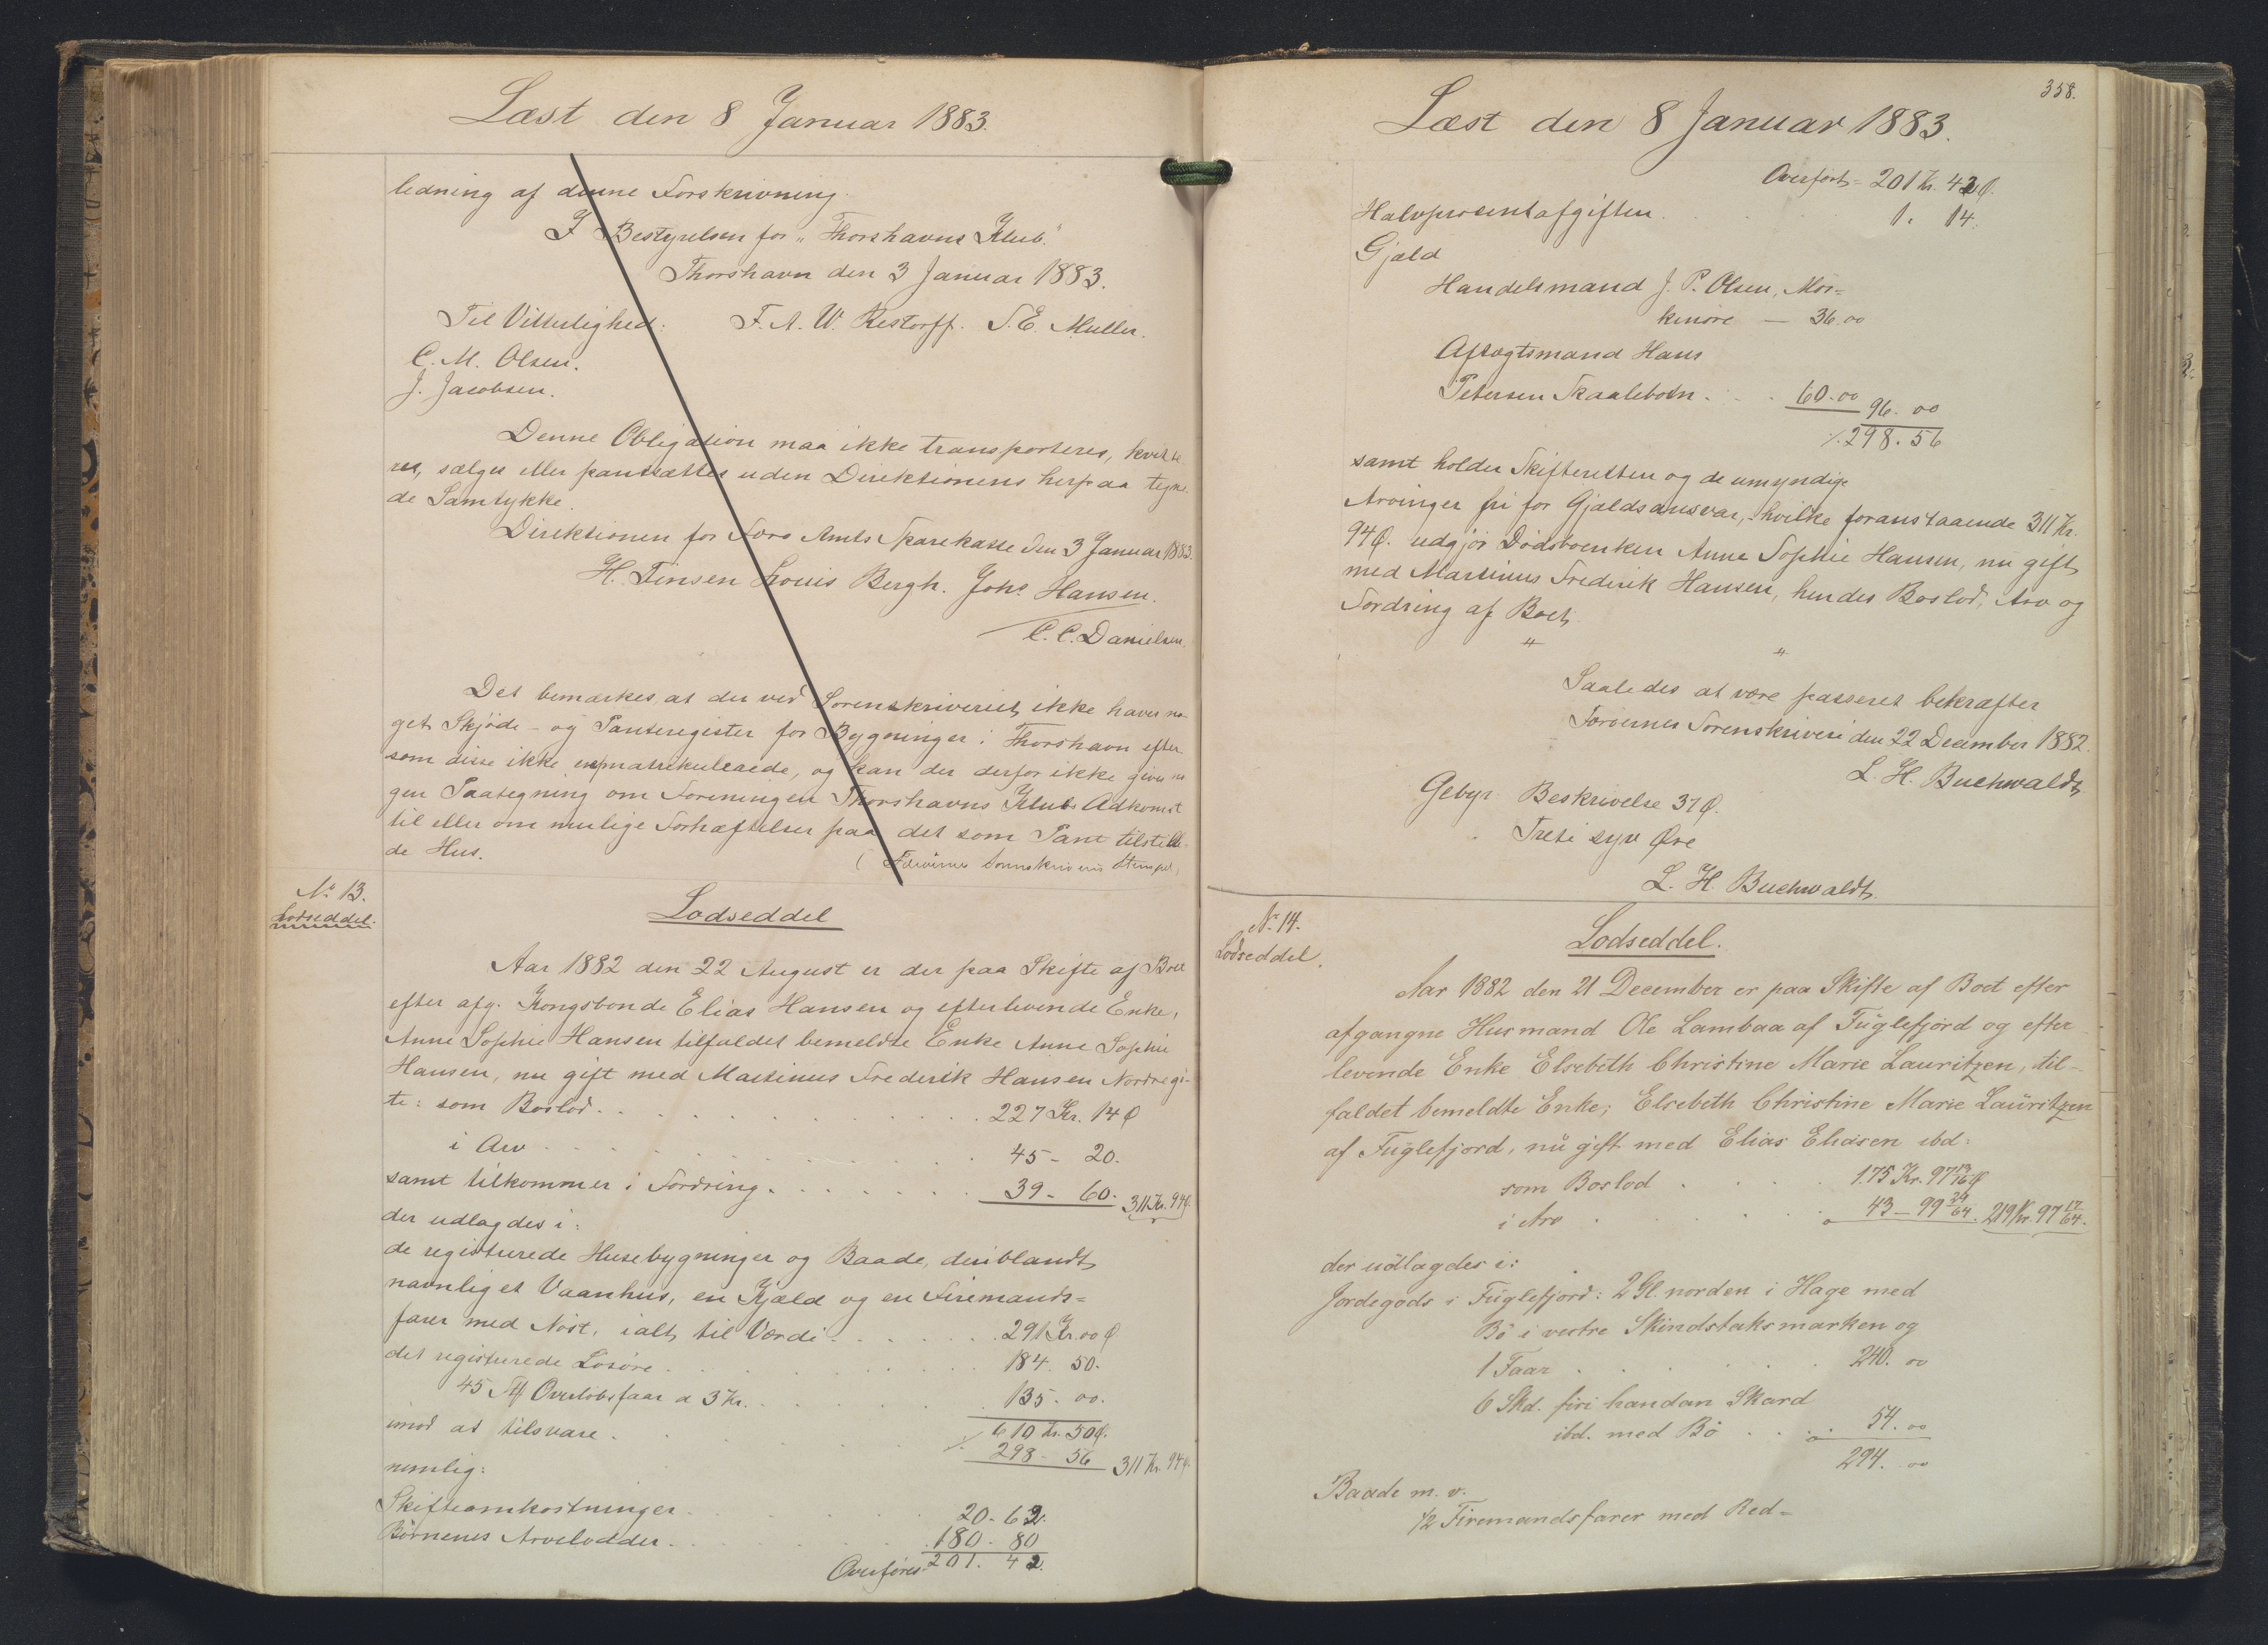 Læst den 8 Januar 1883.
ledning af denne Forskrivning.
I Bestyrelsen for "Thorshavns Klub."
Thorshavn den 3 Januar 1883.
Til Vitterlighed: F. A. W. Restorff. S. E. Muller.
C. M. Olsen.
J. Jacobsen.
Denne Obligation maa ikke transporteres, kvitte
res, sælges eller pantsættes uden Direktionens herpaa tegne
de Samtykke.
Direktionen for Færø Amts Sparekasse den 3 Januar 1883.
H. Finsen Louis Bergh. Johs Hansen.
C. C. Danielsen.
Det bemærkes, at der ved Sorenskriveriet ikke haves no-
get Skjøde- og Panteregister for Bygninger i Thorshavn efter
som disse ikke ere matrikulerede, og kan der derfor ikke gives no
gen Paategning om Foreningen Thorshavns Klubs Adkomst
til eller om mulige Forhæftelser paa det som Pant tilstille-
de Hus.
(Færøernes Sorenskriveris Stempel)
No 13.
Lodseddel.
Lodseddel
Aar 1882 den 22 August er der paa Skifte af Boet
efter afg. Kongsbonde Elias Hansen og efterlevende Enke,
Anne Sophie Hansen tilfaldet bemeldte Enke Anne Sophie
Hansen, nu gift med Martinus Frederik Hansen Nordregi-
te: som Boslod. 227 Kr. 14 Ø
i Arv 45 - 20.
samt tilkommer i Fordring. 39 - 60. 311 Kr. 94 Ø.
der udlagdes i:
de registerede Husebygninger og Baade, deriblandt
navnlig et Vaanhus, en Kjæld og en Firemands-
farer med Nøst, ialt til Værdi 291 Kr. 00 Ø
det registerede Løsøre 184. 50.
45 St Overlobsfaar a 3 Kr. 135. 00.
imod at tilsvare 610 Kr. 50 Ø.
⁒ 298 - 56 311 Kr. 94 Ø.
nemlig:
Skifteomkostninger. 20 - 62.
Børnenes Arvelodder. 180 - 80
Overføres 201. 42.
358.
Læst den 8 Januar 1883.
Overført = 201 Kr. 42 Ø.
Halvprocentafgiften. 1. 14.
Gjæld
Handelsmand J. P. Olsen, Mor=
kenore — 36.00
Aftægtsmand Hans
Petersen Skaalebotn. 60.00 96. 00
⁒ 298. 56
samt holder Skifteretten og de umyndige
Arvinger fri for Gjældsansvar, - hvilke foranstaaende 311 Kr.
94 Ø. udgjør Dødsboenken Anne Sophie Hansen, nu gift
med Martinus Frederik Hansen, hendes Boslod, Arv og
Fordring af Boet.
" "
Saaledes at være passeret bekræfter
Færøernes Sorenskriveri den 22 December 1882.
L. H. Buchwaldt
Gebyr. Beskrivelse 37 Ø.
Treti syv Øre
L. H. Buchwaldt.
No 14.
Lodseddel.
Lodseddel.
Aar 1882 den 21 December er paa Skifte af Boet efter
afgangne Husmand Ole Lambaa af Fuglefjord og efter
levende Enke Elsebeth Christine Marie Lauritzen, til-
faldet bemeldte Enke; Elsebeth Christine Marie Lauritzen
af Fuglefjord, nu gift med Elias Eliasen ibd:
som Boslod 175 Kr. 97 13/16 Ø
i Arv 43 - 99 29/64. 219 Kr. 97 17/64.
der udlagdes i:
Jordegods i Fuglefjord: 2 Gl. norden i Hage med
Bø i vestre Skindstaksmarken og
1 Faar 240. 00
6 Skd. firi handan Skard
ibd. med Bø 54. 00
294. 00
Baade m. v.
1/2 Firemandsfarer med Red=